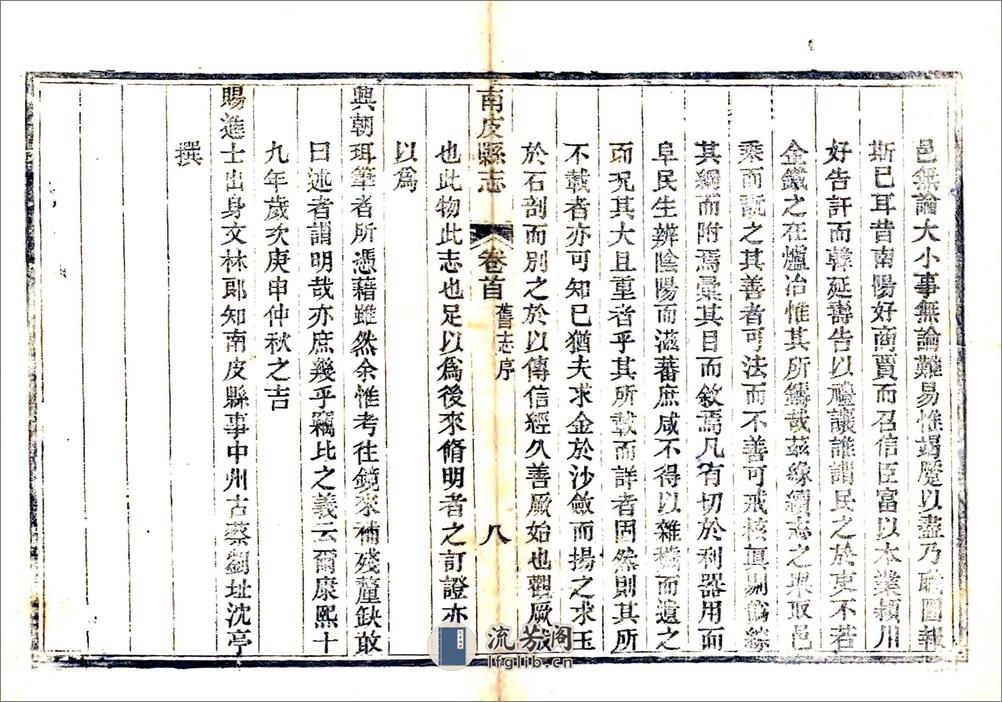 邑無論大小事無論難易惟竭蹷以盡乃職圖報
斯已耳昔南陽好商賈而召信臣富以本業潁川
好告訐而韓延壽告以禮讓誰謂民之於吏不若
金鐵之在爐冶惟其所鑄哉茲緣續志之舉取邑
乘而翫之其善者可法而不善可戒核眞剔僞綜
其綱而附焉彙其目而敘焉凡有切於利器用而
阜民生辨陰陽而滋蕃庶咸不得以雜穢而遺之
而况其大且重者乎其所載而詳者固然則其所
不載者亦可知已猶夫求金於沙斂而揚之求玉
於石剖而別之於以傳信經久善厥始也觀厥成
南皮縣志
卷首
舊志序
八
也此物此志也足以爲後來脩明者之訂證亦
以爲
興朝珥筆者所憑藉雖然余惟考往鏡來補殘釐缺敢
曰述者謂明哉亦庶幾乎竊比之義云爾康熙十
九年歲次庚申仲秋之吉
賜進士出身文林郎知南皮縣事中州古蔡劉址沈亭
撰
流芳閣
lfglib.cn